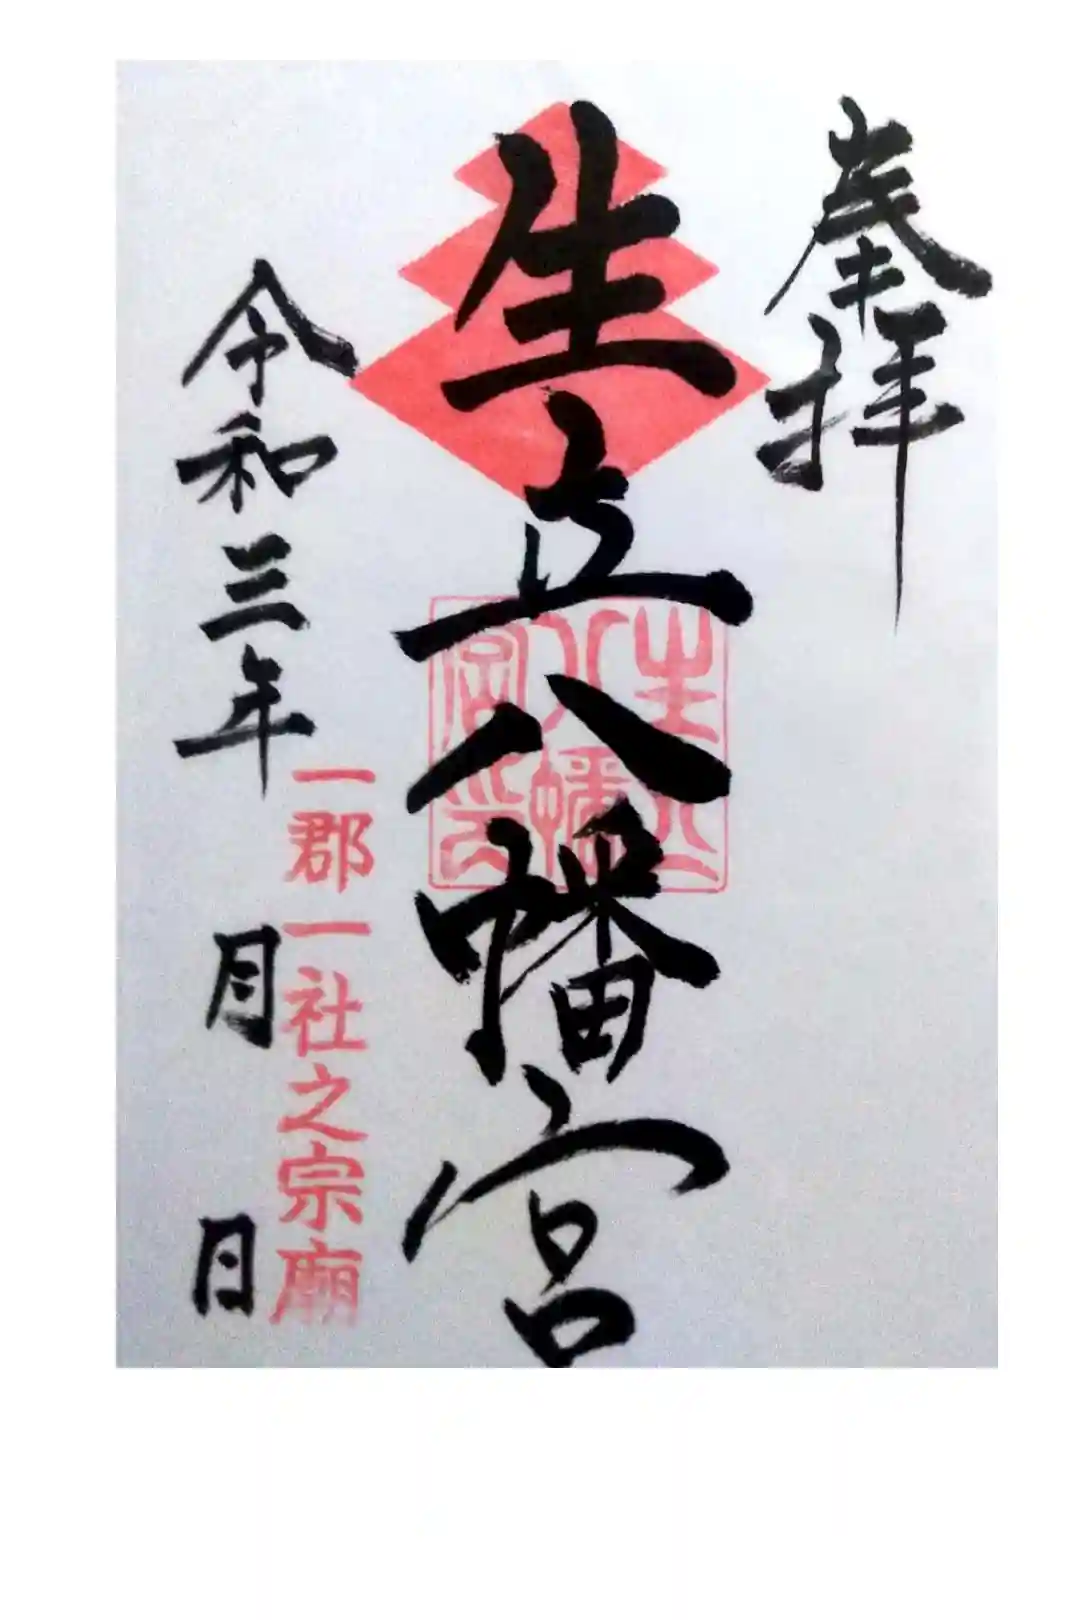 奉拝
生立八幡宮
生立八幡宮印
一郡一社之宗廟
令和三年 月 日